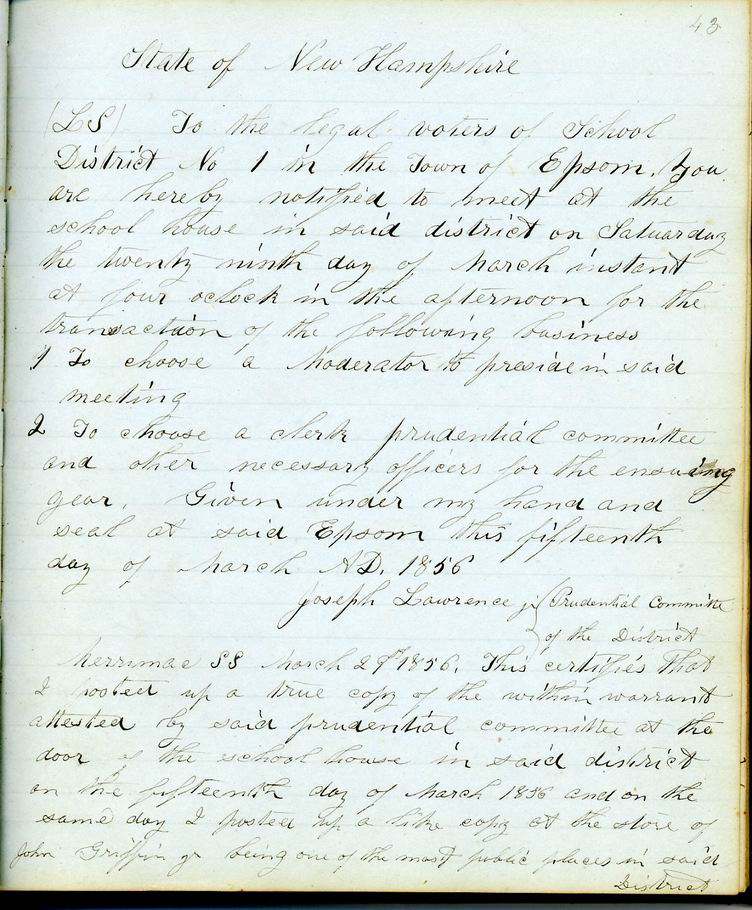 43
State of New Hampshire
(LS) To the legal voters of School
District No 1 in the Town of Epsom. You
are hereby notified to meet at the
school house in said district on Satuarday
the twenty ninth day of March instant
at four oclock in the afternoon for the
transaction of the following business
1 To choose a Moderator to preside in said
meeting
2 To choose a clerk prudential committee
and other necessary officers for the ensuing
year. Given under my hand and
seal at said Epsom this fifteenth
day of March AD. 1856
Joseph Lawrence jr } Prudential Committe
of the District
Merrimac SS March 29th 1856. This certifies that
I posted up a true copy of the within warrant
attested by said prudential committee at the
door of the school house in said district
on the fifteenth day of March 1856 and on the
same day I posted up a like copy at the store of
John Griffin jr being one of the most public places in said
District